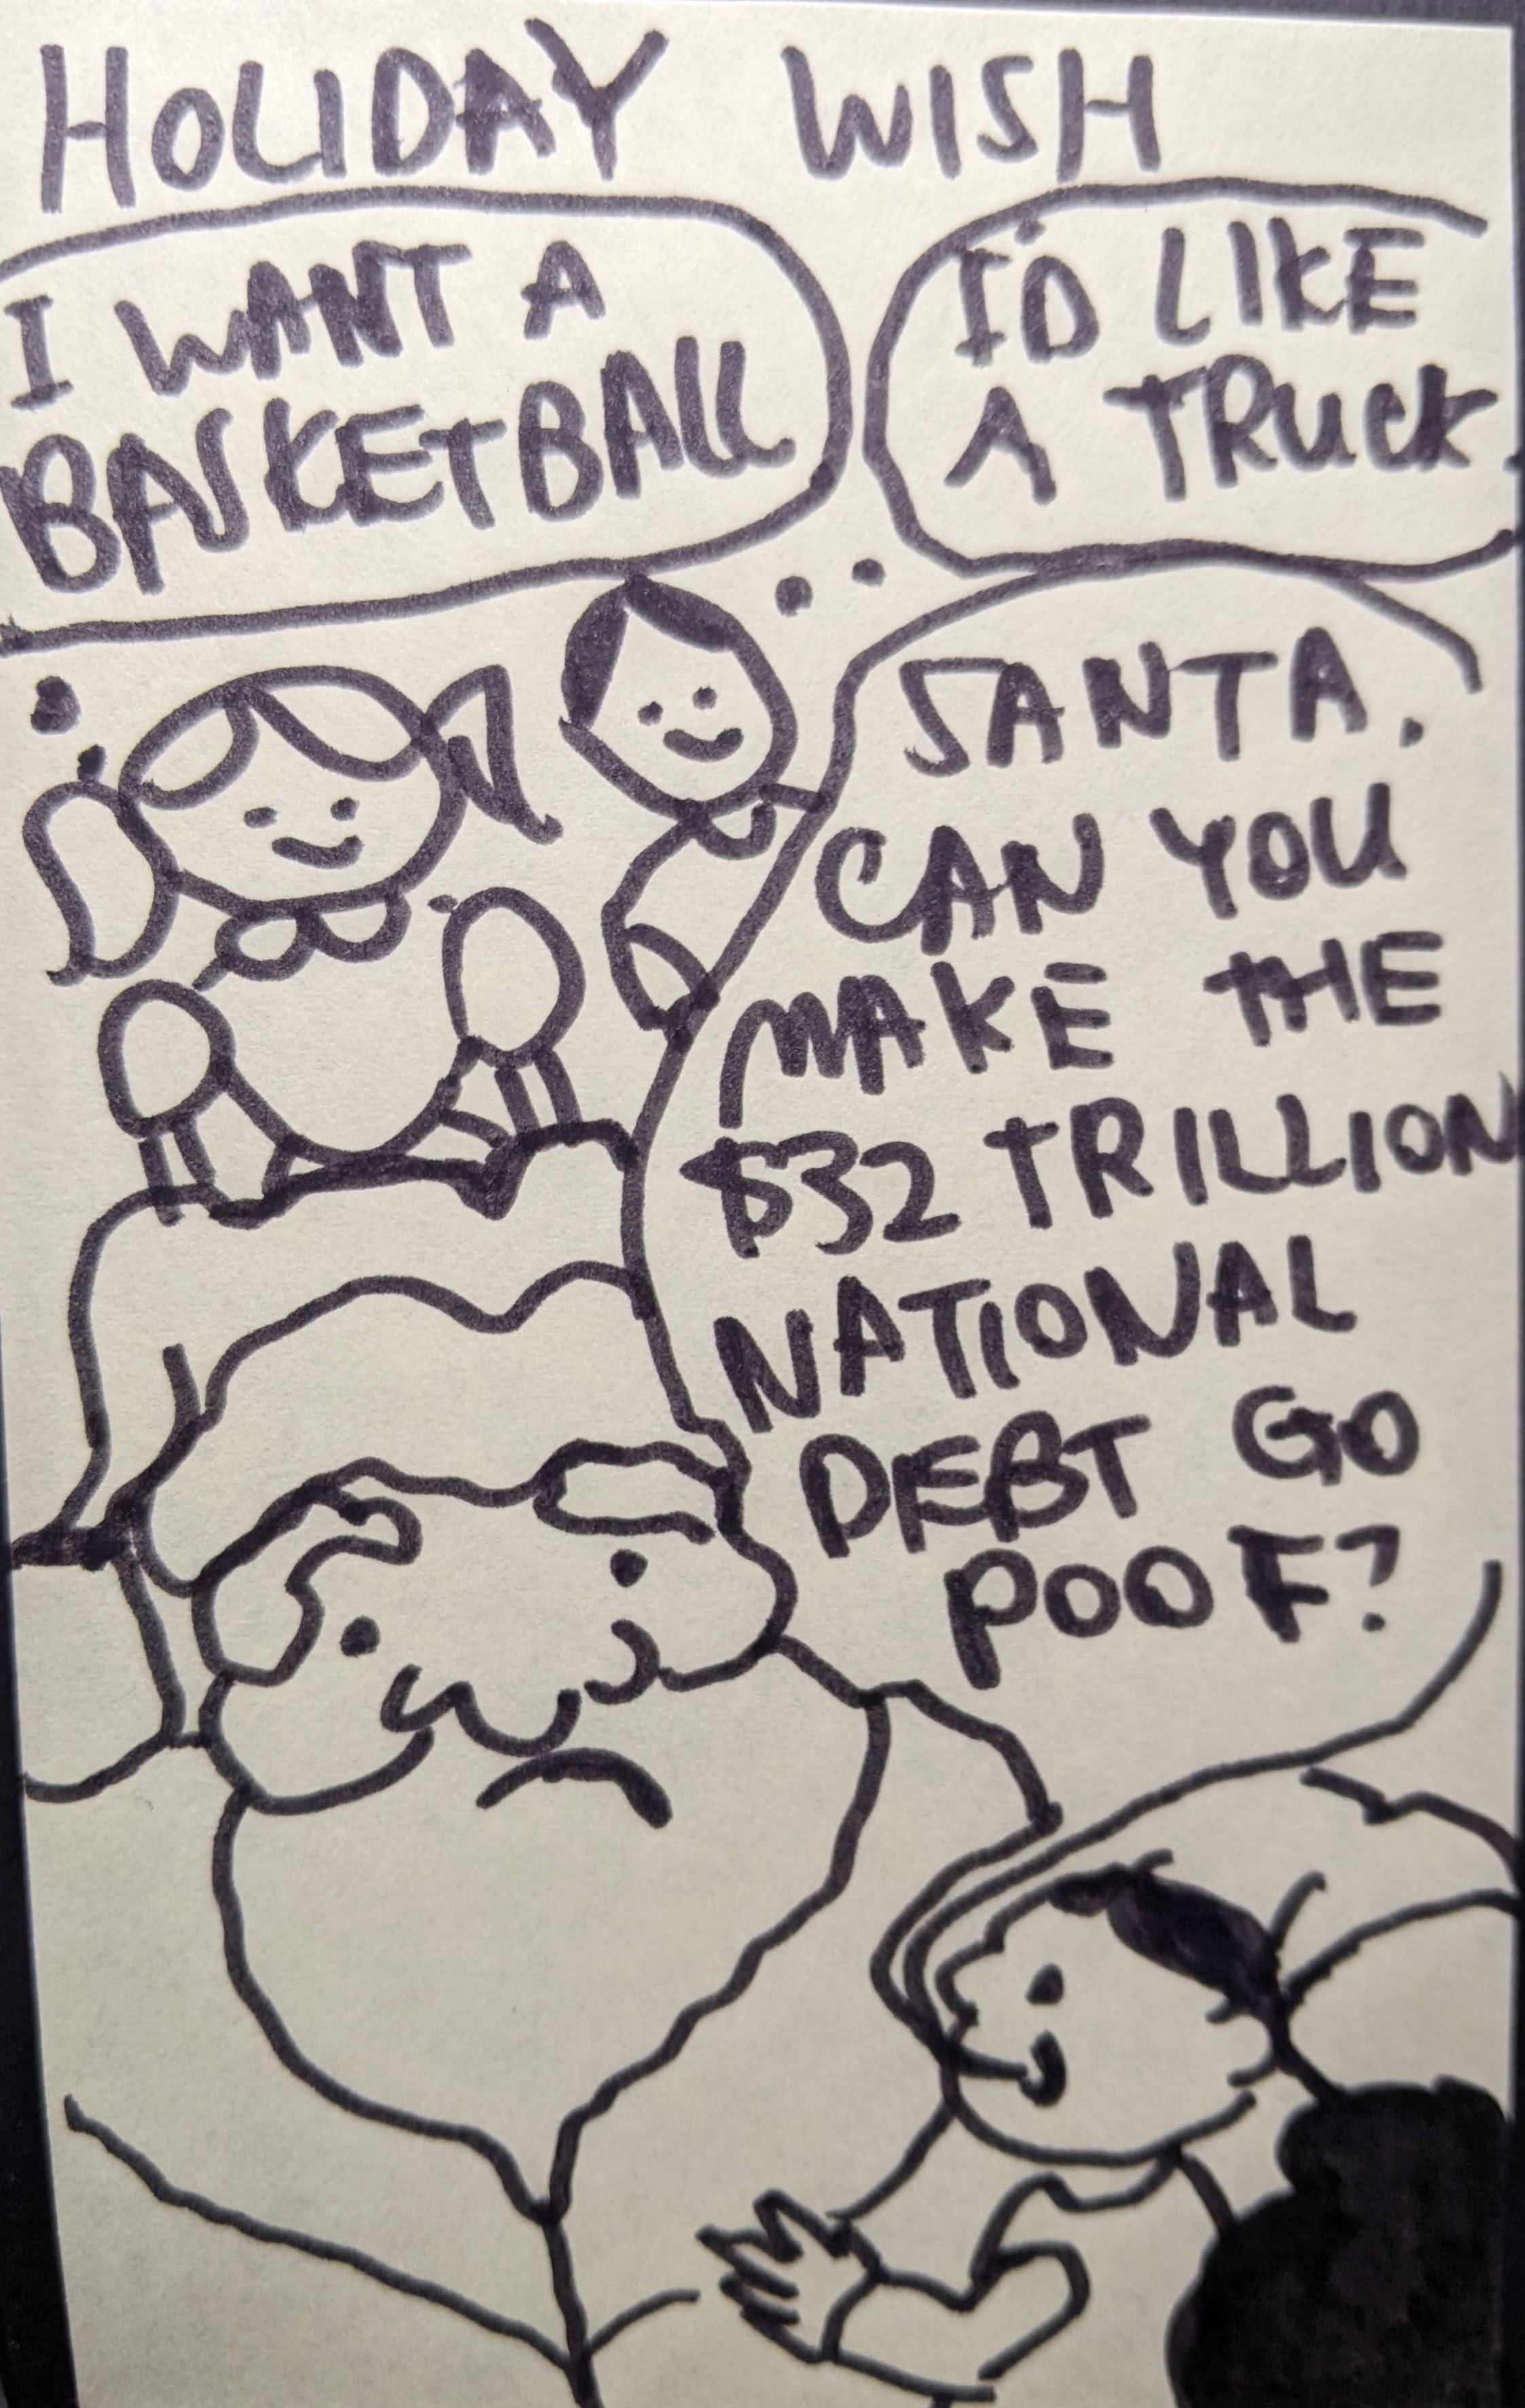 HOLIDAY WISH
I WANT A
BASKETBALL
I'D LIKE
A TRUCK.
SANTA.
CAN YOU
MAKE THE
$32 TRILLION
NATIONAL
DEBT GO
POOF?